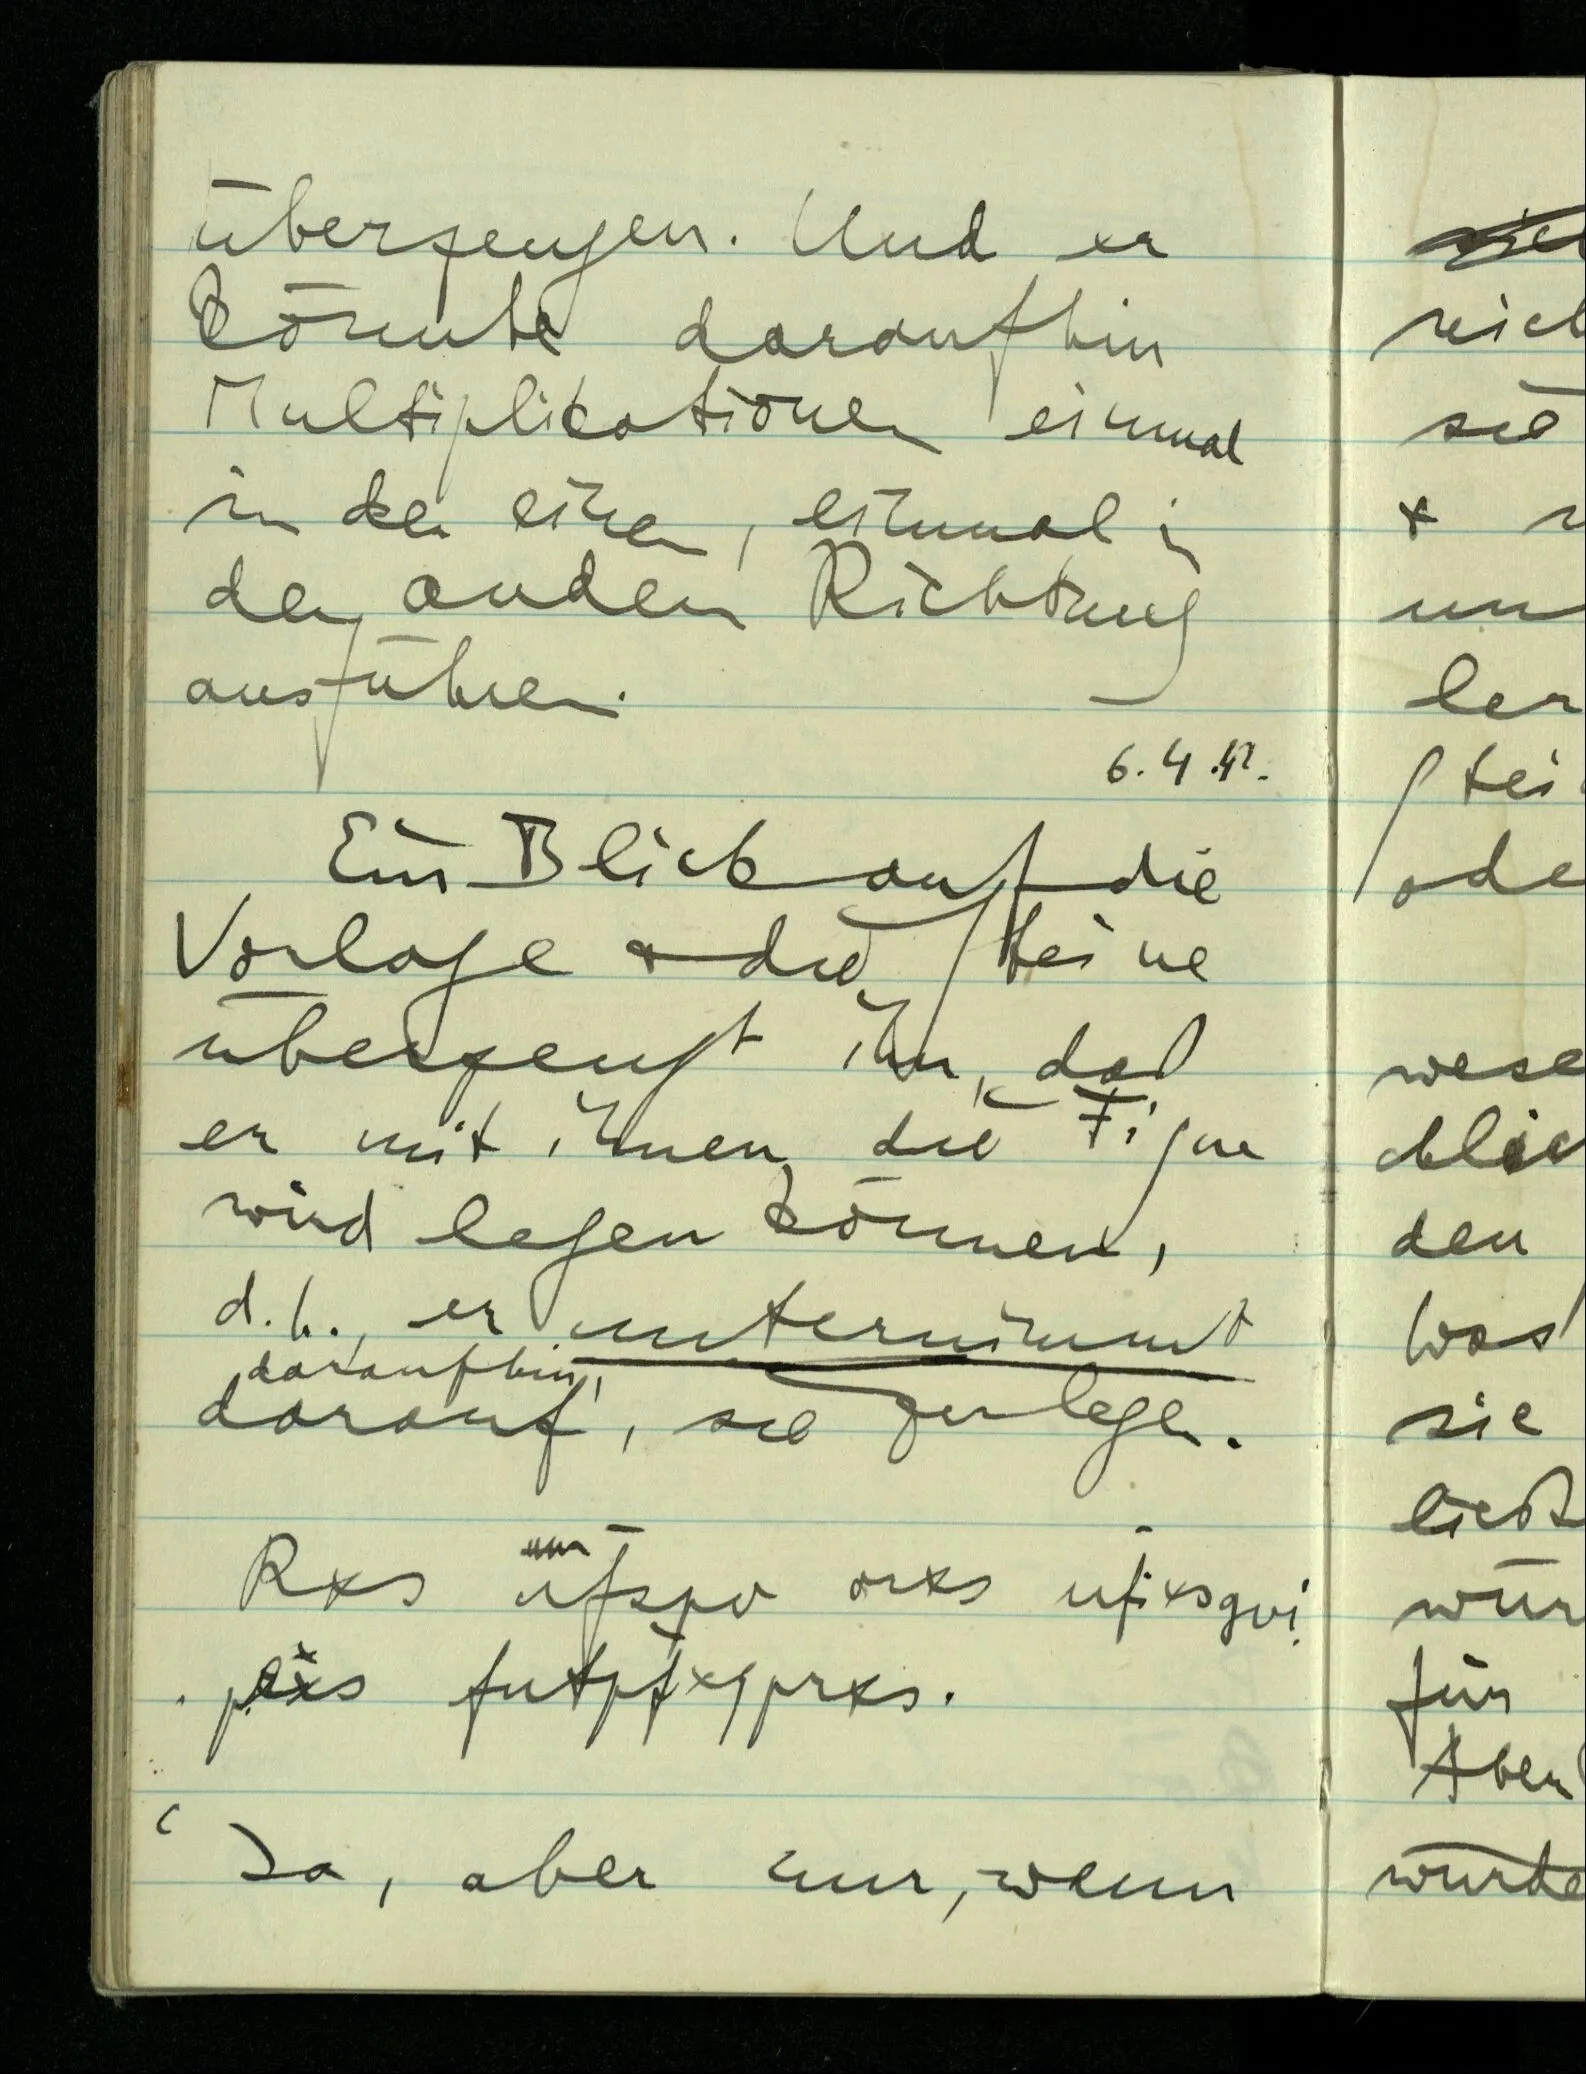 überzeugen. Und er
könnte daraufhin
Multiplikationen einmal
in der einen, einmal in
der andern Richtung
ausführen.
6.4.42.
Ein Blick auf die
Vorlage & die Steine
überzeugt ihn, daß
er mit ihnen die Figur
wird legen können,
d.h., er unternimmt
daraufhin,
darauf, sie zu legen.
Rxs üfspv orxs ufixsgvi
prxs fntpfxqprxs.
Ja, aber nur, wenn
sie
&
oder
wese
den
Was
sie
ließ
wür
für
Aber
wurde